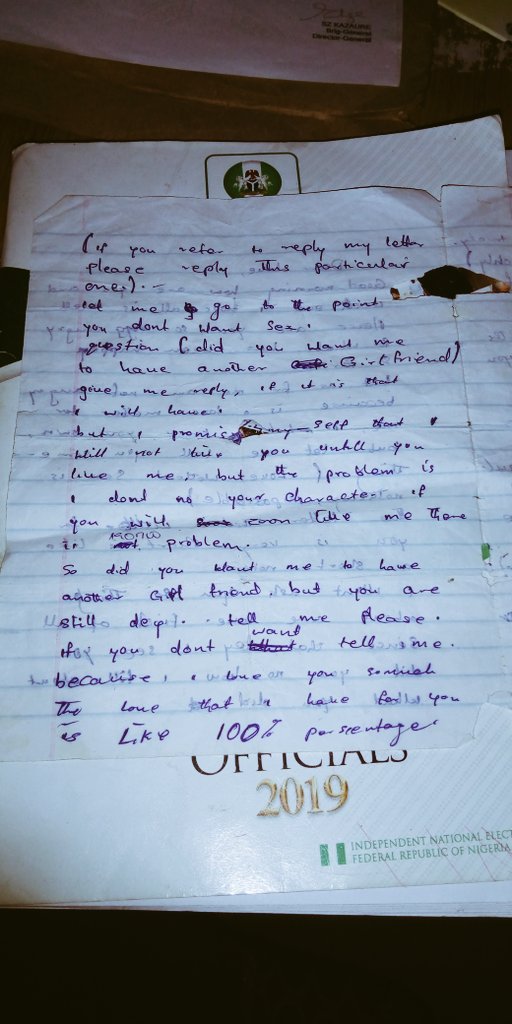 SZ KAZAURE
Brig-General
Director-General
(if you refer to reply my letter
please reply this particular
one).-
let me go to the point
you dont want sex.
question (did you want me
to have another Girl friend)
give me reply, if it is that
i will have.
but, i promis my self that i
will not you untill you
like me, but the (problem is
i dont no your character if
you will soon like me there
is problem.
So did you want me to have
another Girl friend. but you are
still dey. tell me please.
if you dont want tell me.
because, i love you somuch
The love that i have for you
is LIKE 100% parsentage.
OFFICIALS
2019
INDEPENDENT NATIONAL ELECT
FEDERAL REPUBLIC OF NIGERIA